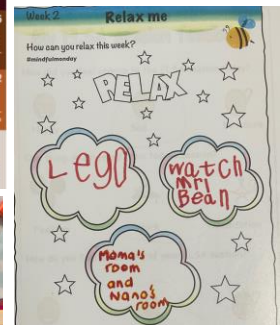 Week 2
Relax me
How can you relax this week?
#mindfulmonday
RELAX
Lego
watch
mr
Bean
Mama's
room
and
Nano's
room